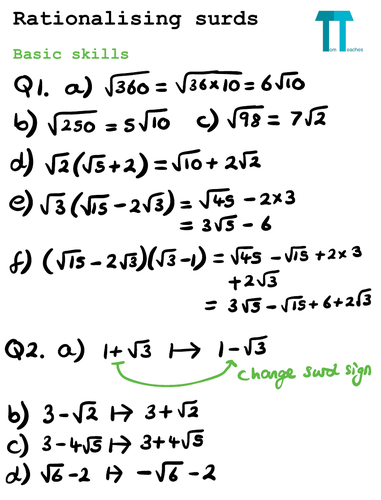 Rationalising surds
Tom Teaches
Basic skills
Q1. a) √360 = √36×10 = 6√10
b) √250 = 5√10 c) √98 = 7√2
d) √2(√5+2) = √10 + 2√2
e) √3(√15 - 2√3) = √45 - 2×3
= 3√5 - 6
f) (√15 - 2√3)(√3 - 1) = √45 - √15 + 2×3
+ 2√3
= 3√5 - √15 + 6 + 2√3
Q2. a) 1+√3 ↦ 1-√3
change surd sign
b) 3-√2 ↦ 3+√2
c) 3-4√5 ↦ 3+4√5
d) √6-2 ↦ -√6-2